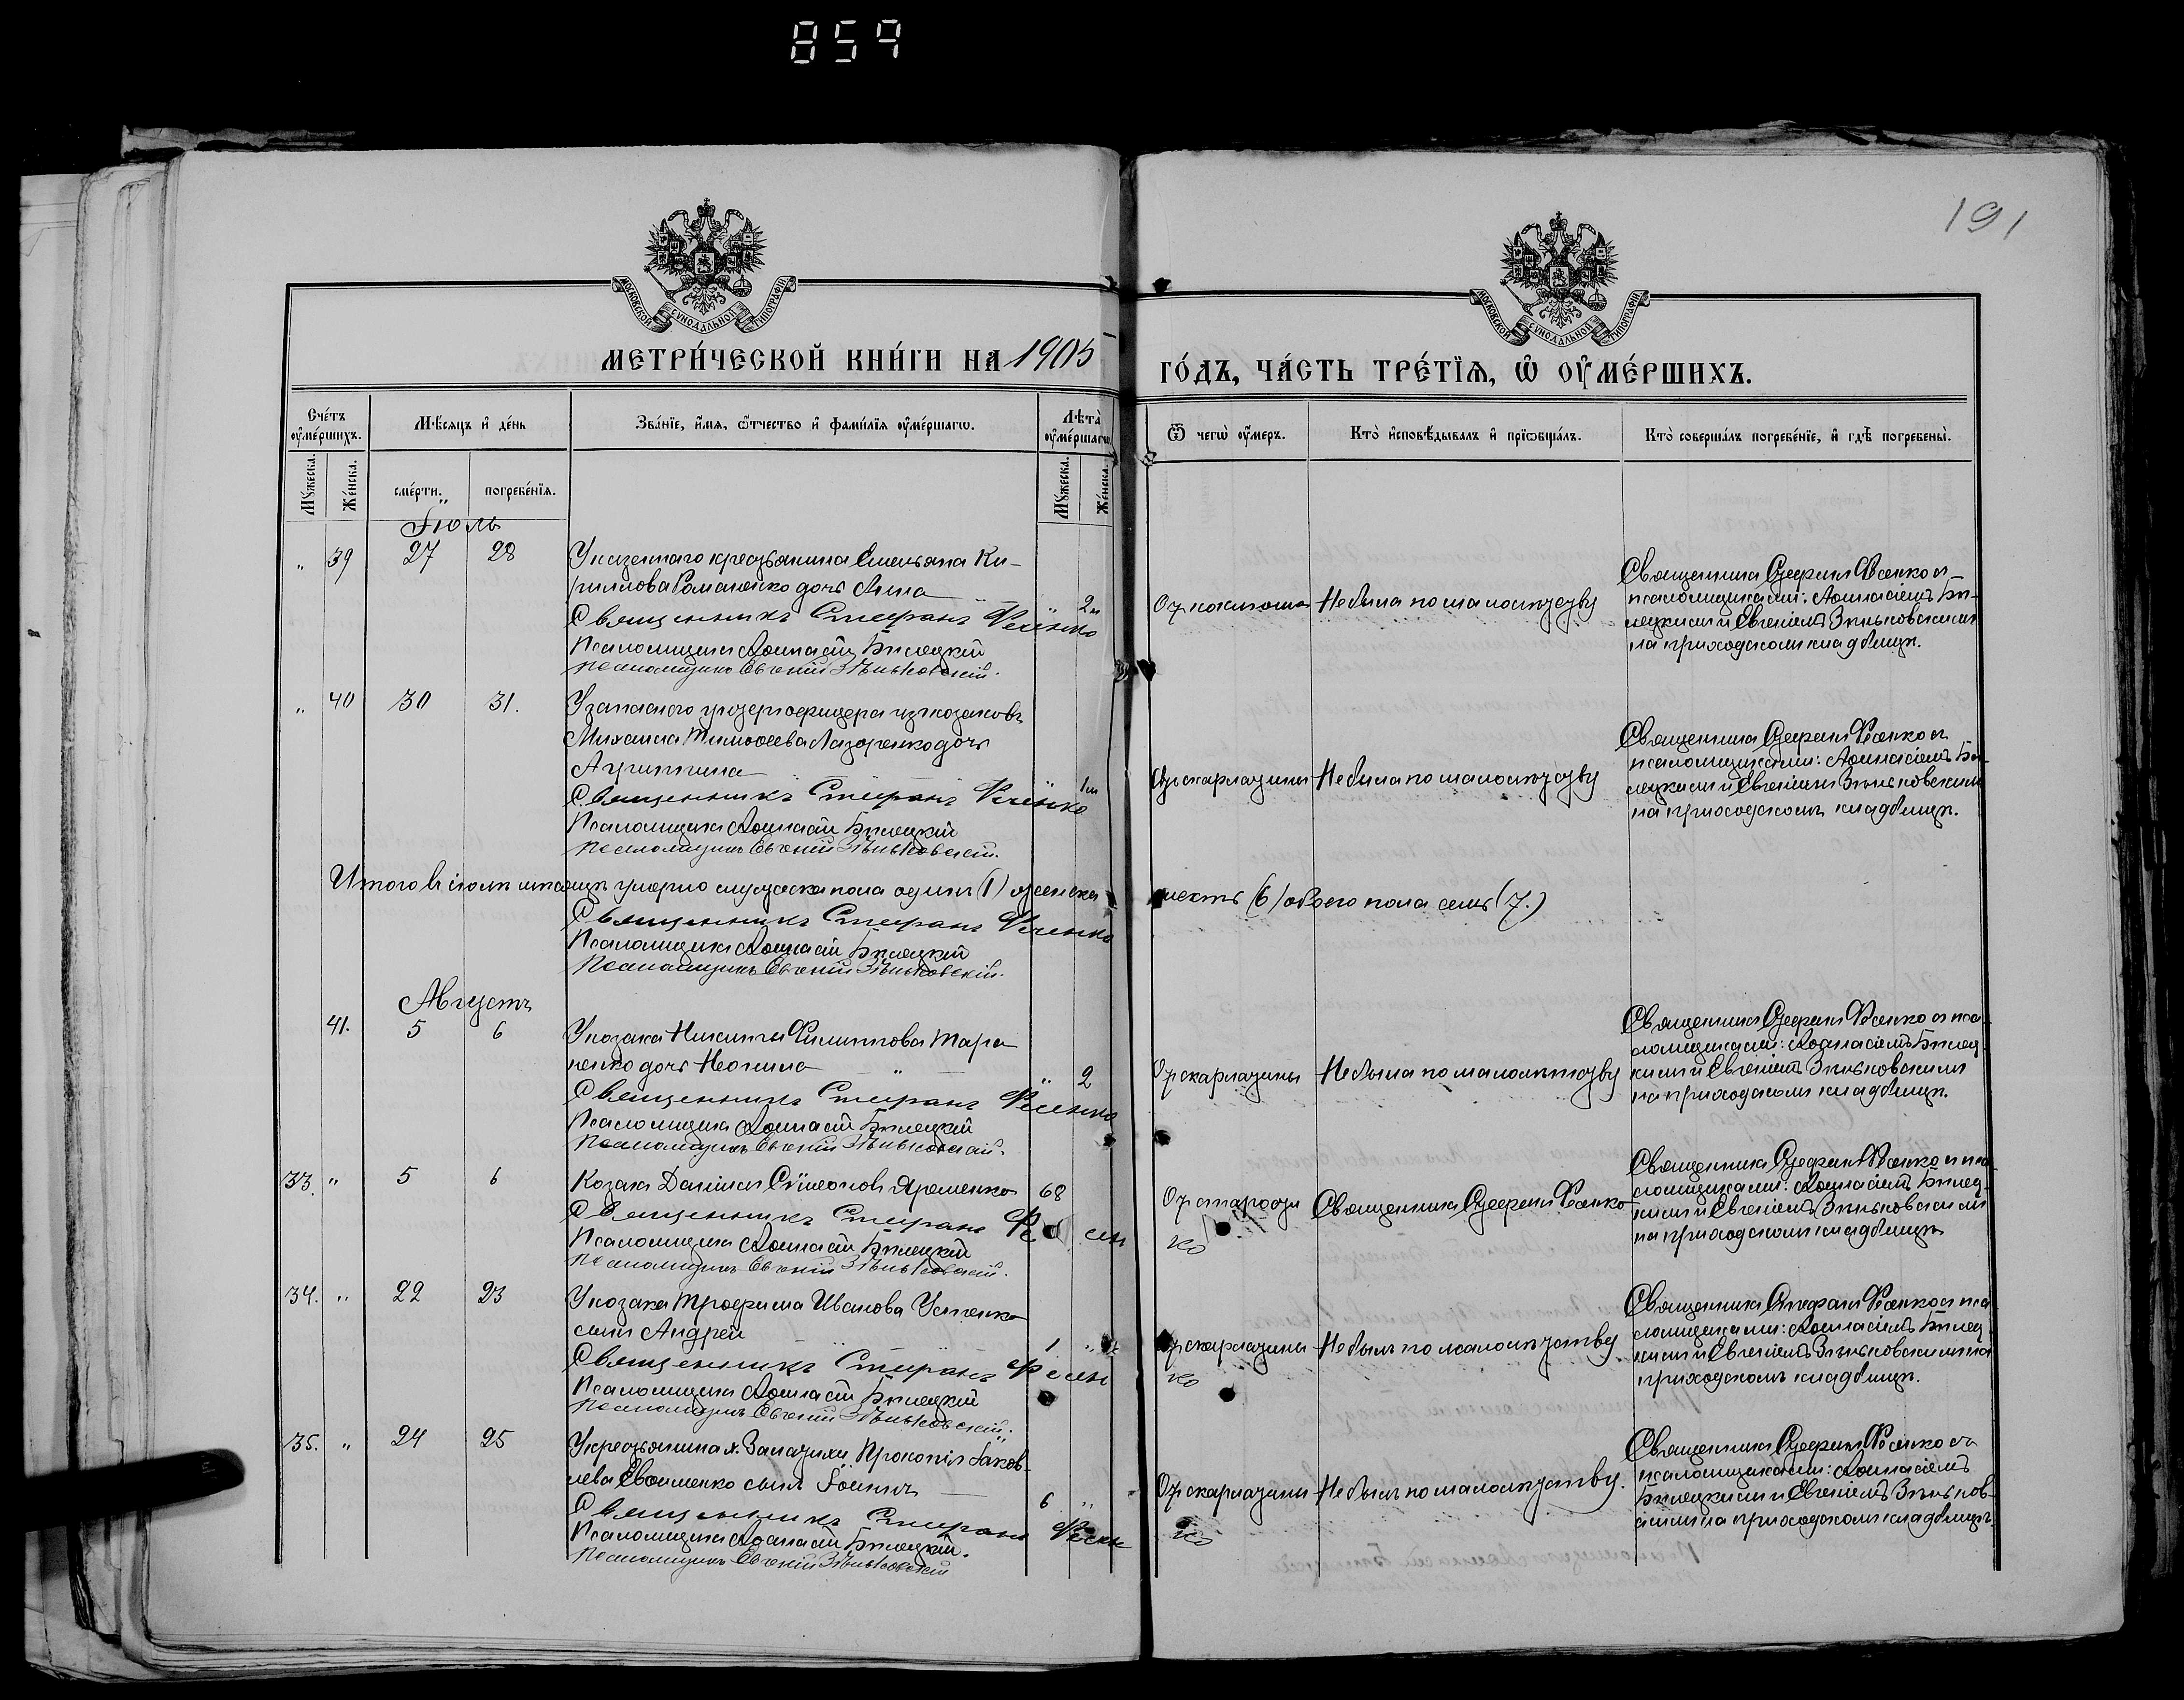 859
191
МОСКОВСКОЙ СУНОДАЛЬНОЙ ТИПОГРАФІИ
МОСКОВСКОЙ СУНОДАЛЬНОЙ ТИПОГРАФІИ
МЕТРИ́ЧЕСКОЙ КНИ́ГИ НА 1905
ГО́ДЪ, ЧА́СТЬ ТРЕ́ТЇѦ, Ѿ ОУ҆МЕ́РШИХЪ.
Сче́тъ оу҆ме́ршихъ.
Мѣ́сѧцъ и҆ де́нь
Зва́нїе, и҆́мѧ, ѻ҆́тчество и҆ фами́лїѧ оу҆ме́ршагѡ.
Лѣ́та оу҆ме́ршагѡ
Ѿ чегѡ̀ оу҆́меръ.
Кто̀ и҆сповѣ́дывалъ и҆ прїѡбща́лъ.
Кто̀ соверша́лъ погребе́нїе, и҆ гдѣ̀ погребены̀.
Мꙋ́жеска.
Же́нска.
сме́рти.
погребе́нїѧ.
Мꙋ́жеска.
Же́нска.
Іюль
" 39 27 28 Указеннаго крестьянина Емельяна Ки-
риллова Романенко дочь Анна
Священникъ Стефанъ Фесенко
" 2м
Псаломщикъ Аѳанасій Билецкій
Псаломщикъ Евгеній Зѣньковскій.
Не была по малолѣтству
Священникъ Стефанъ Фесенко съ
псаломщиками: Аѳанасіемъ Би-
лецкимъ и Евгеніемъ Зѣньковскимъ
на приходскомъ кладбищѣ.
" 40 30 31. У запаснаго унтеръ офицера изъ козаковъ
Михаила Тимоѳеева Лазоренко дочь
Агриппина
Священникъ Стефанъ Фесенко
" 1м
Псаломщикъ Аѳанасій Билецкій
Псаломщикъ Евгеній Зѣньковскій.
Отъ скарлатины
Не была по малолѣтству
Священникъ Стефанъ Фесенко съ
псаломщиками: Аѳанасіемъ Би-
лецкимъ и Евгеніемъ Зѣньковскимъ
на приходскомъ кладбищѣ.
Итого въ іюлѣ мѣсяцѣ умерло мужеска пола одинъ (1) женска
шесть (6) обоего пола семь (7.)
Священникъ Стефанъ Фесенко
Псаломщикъ Аѳанасій Билецкій
Псаломщикъ Евгеній Зѣньковскій.
Августъ
41. 5 6 У козака Никиты Филиппова Тара
ненко дочь Неонила " 2
Священникъ Стефанъ Фесенко
Псаломщикъ Аѳанасій Билецкій
Псаломщикъ Евгеній Зѣньковскій.
Отъ скарлатины
Не была по малолѣтству
Священникъ Стефанъ Фесенко съ пса-
ломщиками: Аѳанасіемъ Билец-
кимъ и Евгеніемъ Зѣньковскимъ
на приходскомъ кладбищѣ.
33. " 5 6 Козакъ Даніилъ Сѵмеоновъ Яременко 68
Священникъ Стефанъ Фесен
ко
Псаломщикъ Аѳанасій Билецкій
Псаломщикъ Евгеній Зѣньковскій.
Отъ старости
Священникъ Стефанъ Фесенко
Священникъ Стефанъ Фесенко съ пса-
ломщиками: Аѳанасіемъ Билец-
кимъ и Евгеніемъ Зѣньковскимъ
на приходскомъ кладбищѣ
34. " 22 23 У козака Трофима Иванова Усенко
сынъ Андрей 1 "
Священникъ Стефанъ Фесен
ко
Псаломщикъ Аѳанасій Билецкій
Псаломщикъ Евгеній Зѣньковскій.
Отъ скарлатины
Не былъ по малолѣтству
Священникъ Стефанъ Фесенко съ пса-
ломщиками: Аѳанасіемъ Билец-
кимъ и Евгеніемъ Зѣньковскимъ на
приходскомъ кладбищѣ.
35. " 24 25 У крестьянина х. Запазихи Прокопія Іаков-
лева Евтименко сынъ Іоаннъ 6 "
Священникъ Стефанъ Фесен
ко
Псаломщикъ Аѳанасій Билецкій.
Псаломщикъ Евгеній Зѣньковскій
Отъ скарлатины
Не былъ по малолѣтству.
Священникъ Стефанъ Фесенко съ
псаломщиками: Аѳанасіемъ
Билецкимъ и Евгеніемъ Зѣньков-
скимъ на приходскомъ кладбищѣ.